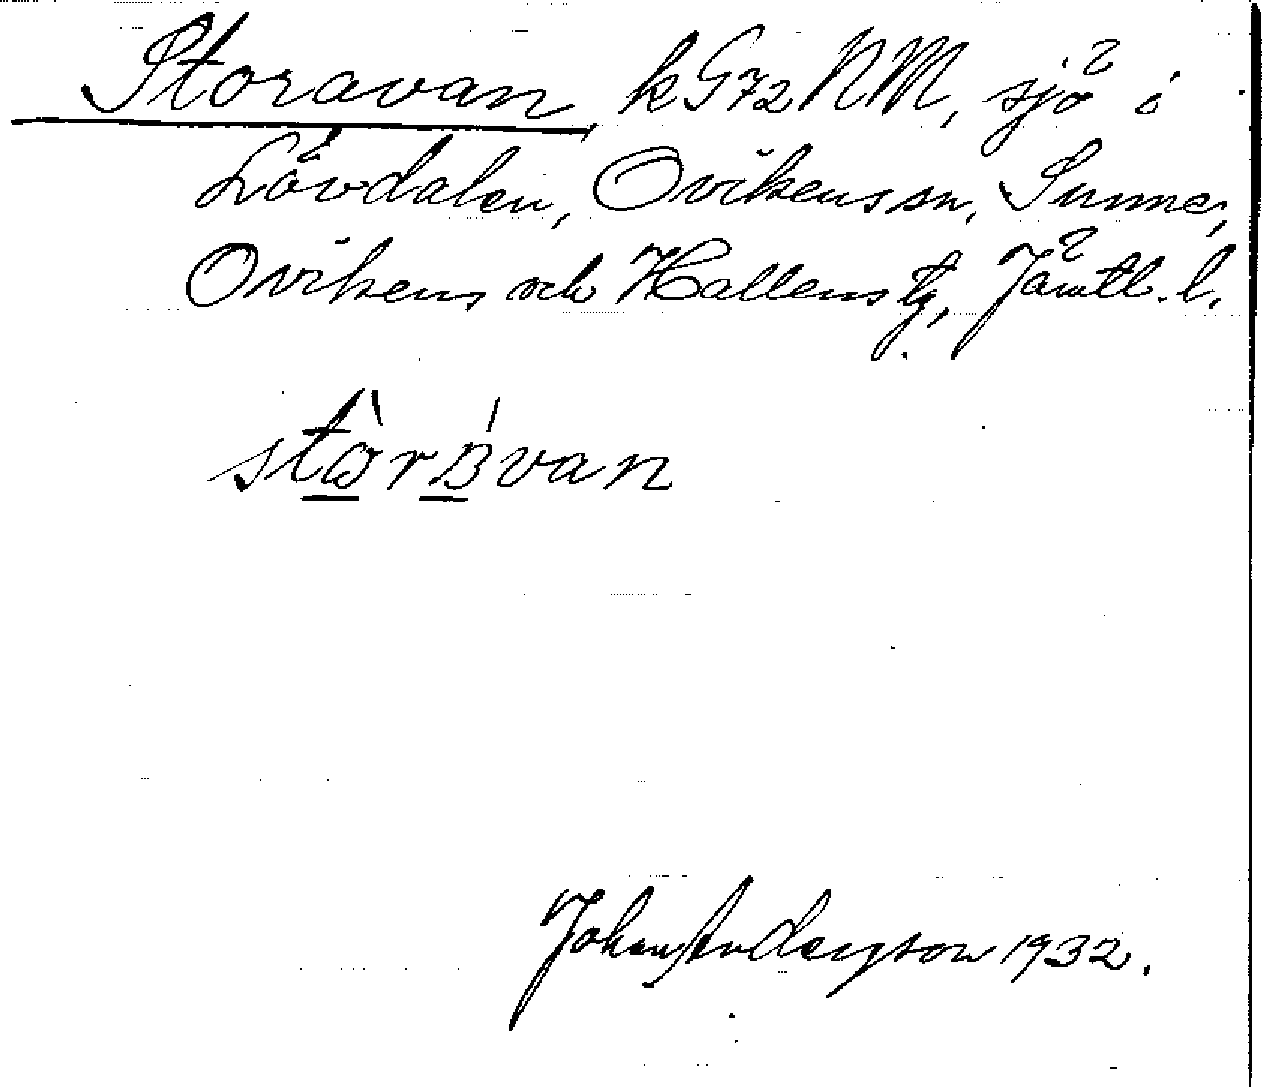 Storavan, k G72 NM, sjö i
Lövdalen, Ovikens sn, Sunne,
Ovikens och Hallens tg, Jämtl. l.
Johan Anderson 1932.